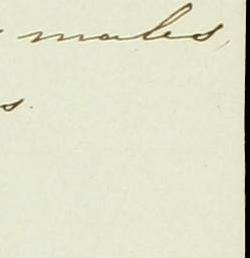 males,
s.